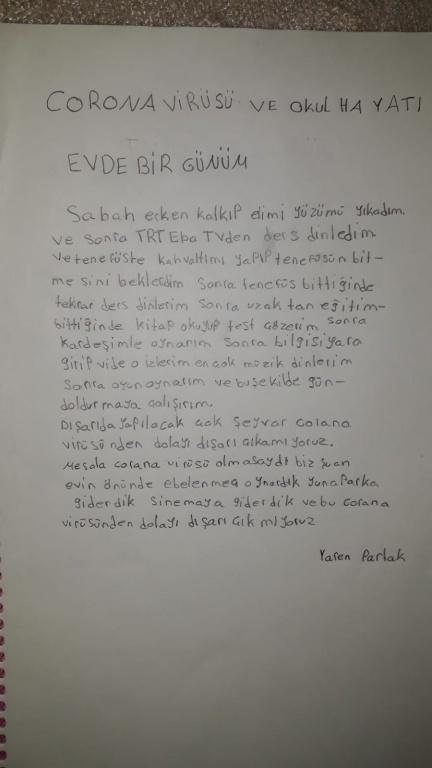 CORONA VİRÜSÜ VE OKUL HAYATI
EVDE BİR GÜNÜM
Sabah erken kalkıp elimi yüzümü yıkadım.
ve sonra TRT Eba TVden ders dinledim
ve tenefüste kahvaltımı yapıp tenefüsün bit-
mesini beklerdim sonra tenefüs bittiğinde
tekrar ders dinlerim sonra uzaktan eğitim-
bittiğinde kitap okuyup test çözerim sonra
kardeşimle oynarım sonra bilgisiyara
girip video izlerim en çok müzik dinlerim
sonra oyun oynarım ve bu şekilde gün-
doldurmaya çalışırım.
Dışarıda yapılacak çok şey var corana
virüsünden dolayı dışarı çıkamıyoruz.
Mesala corana virüsü olmasaydı biz şuan
evin önünde ebelenmeç oynardık lunaparka
giderdik sinemaya giderdik ve bu corana
virüsünden dolayı dışarı çıkmıyoruz
Yaren Parlak